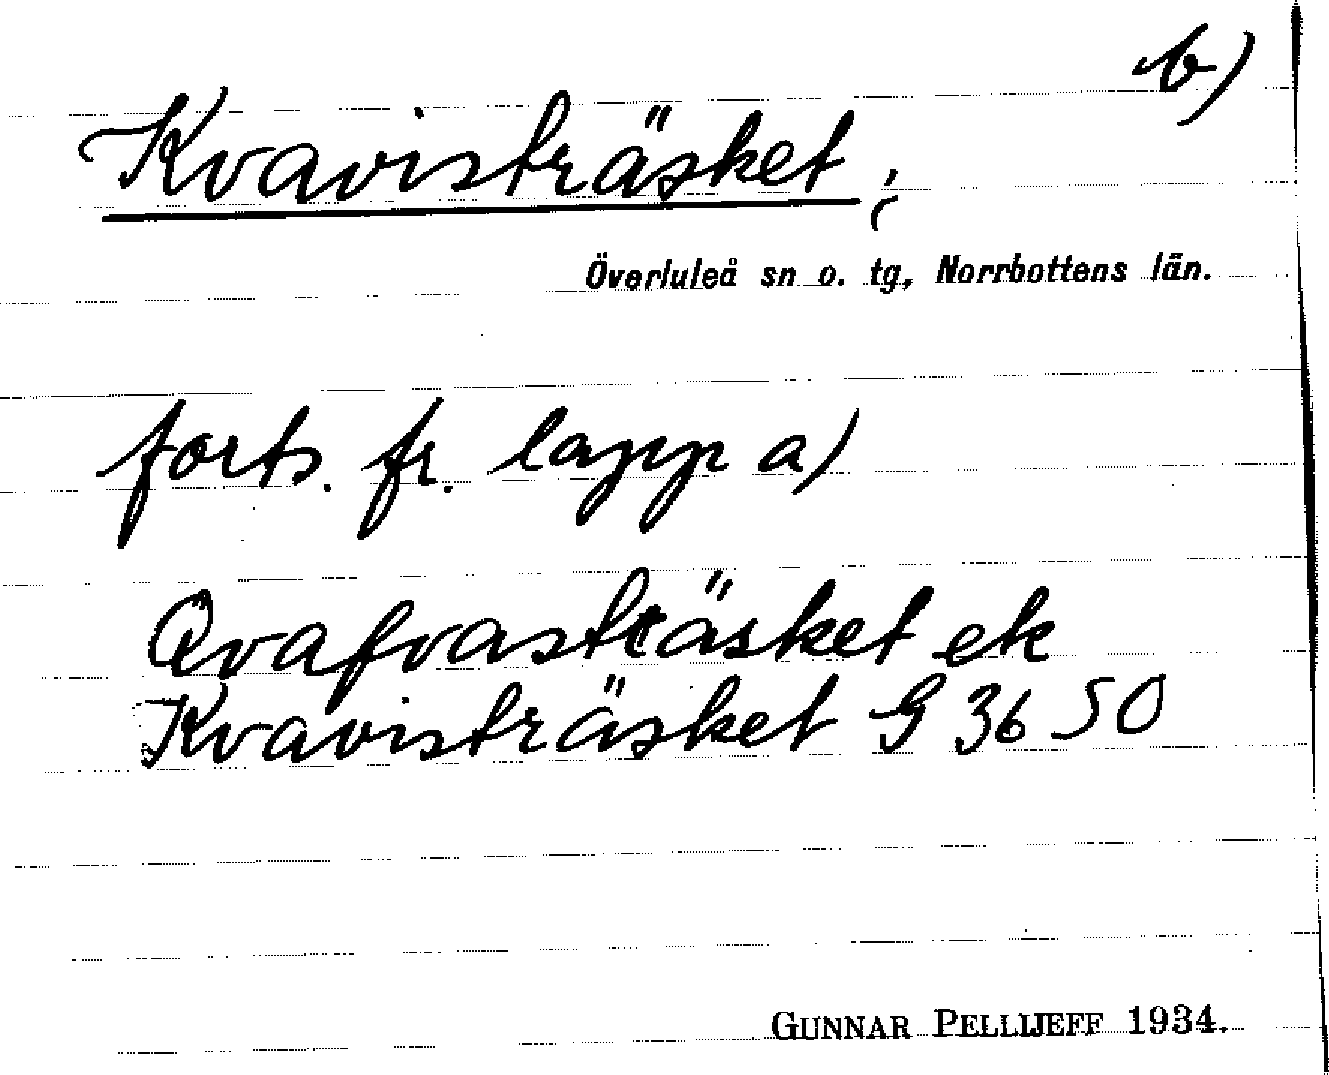 b)
Kvavisträsket;
Överluleå sn o. tg, Norrbottens län.
forts. fr. lapp a)
Qvafvasträsket ek
Kvavisträsket G 36 50
GUNNAR PELLIJEFF 1934.